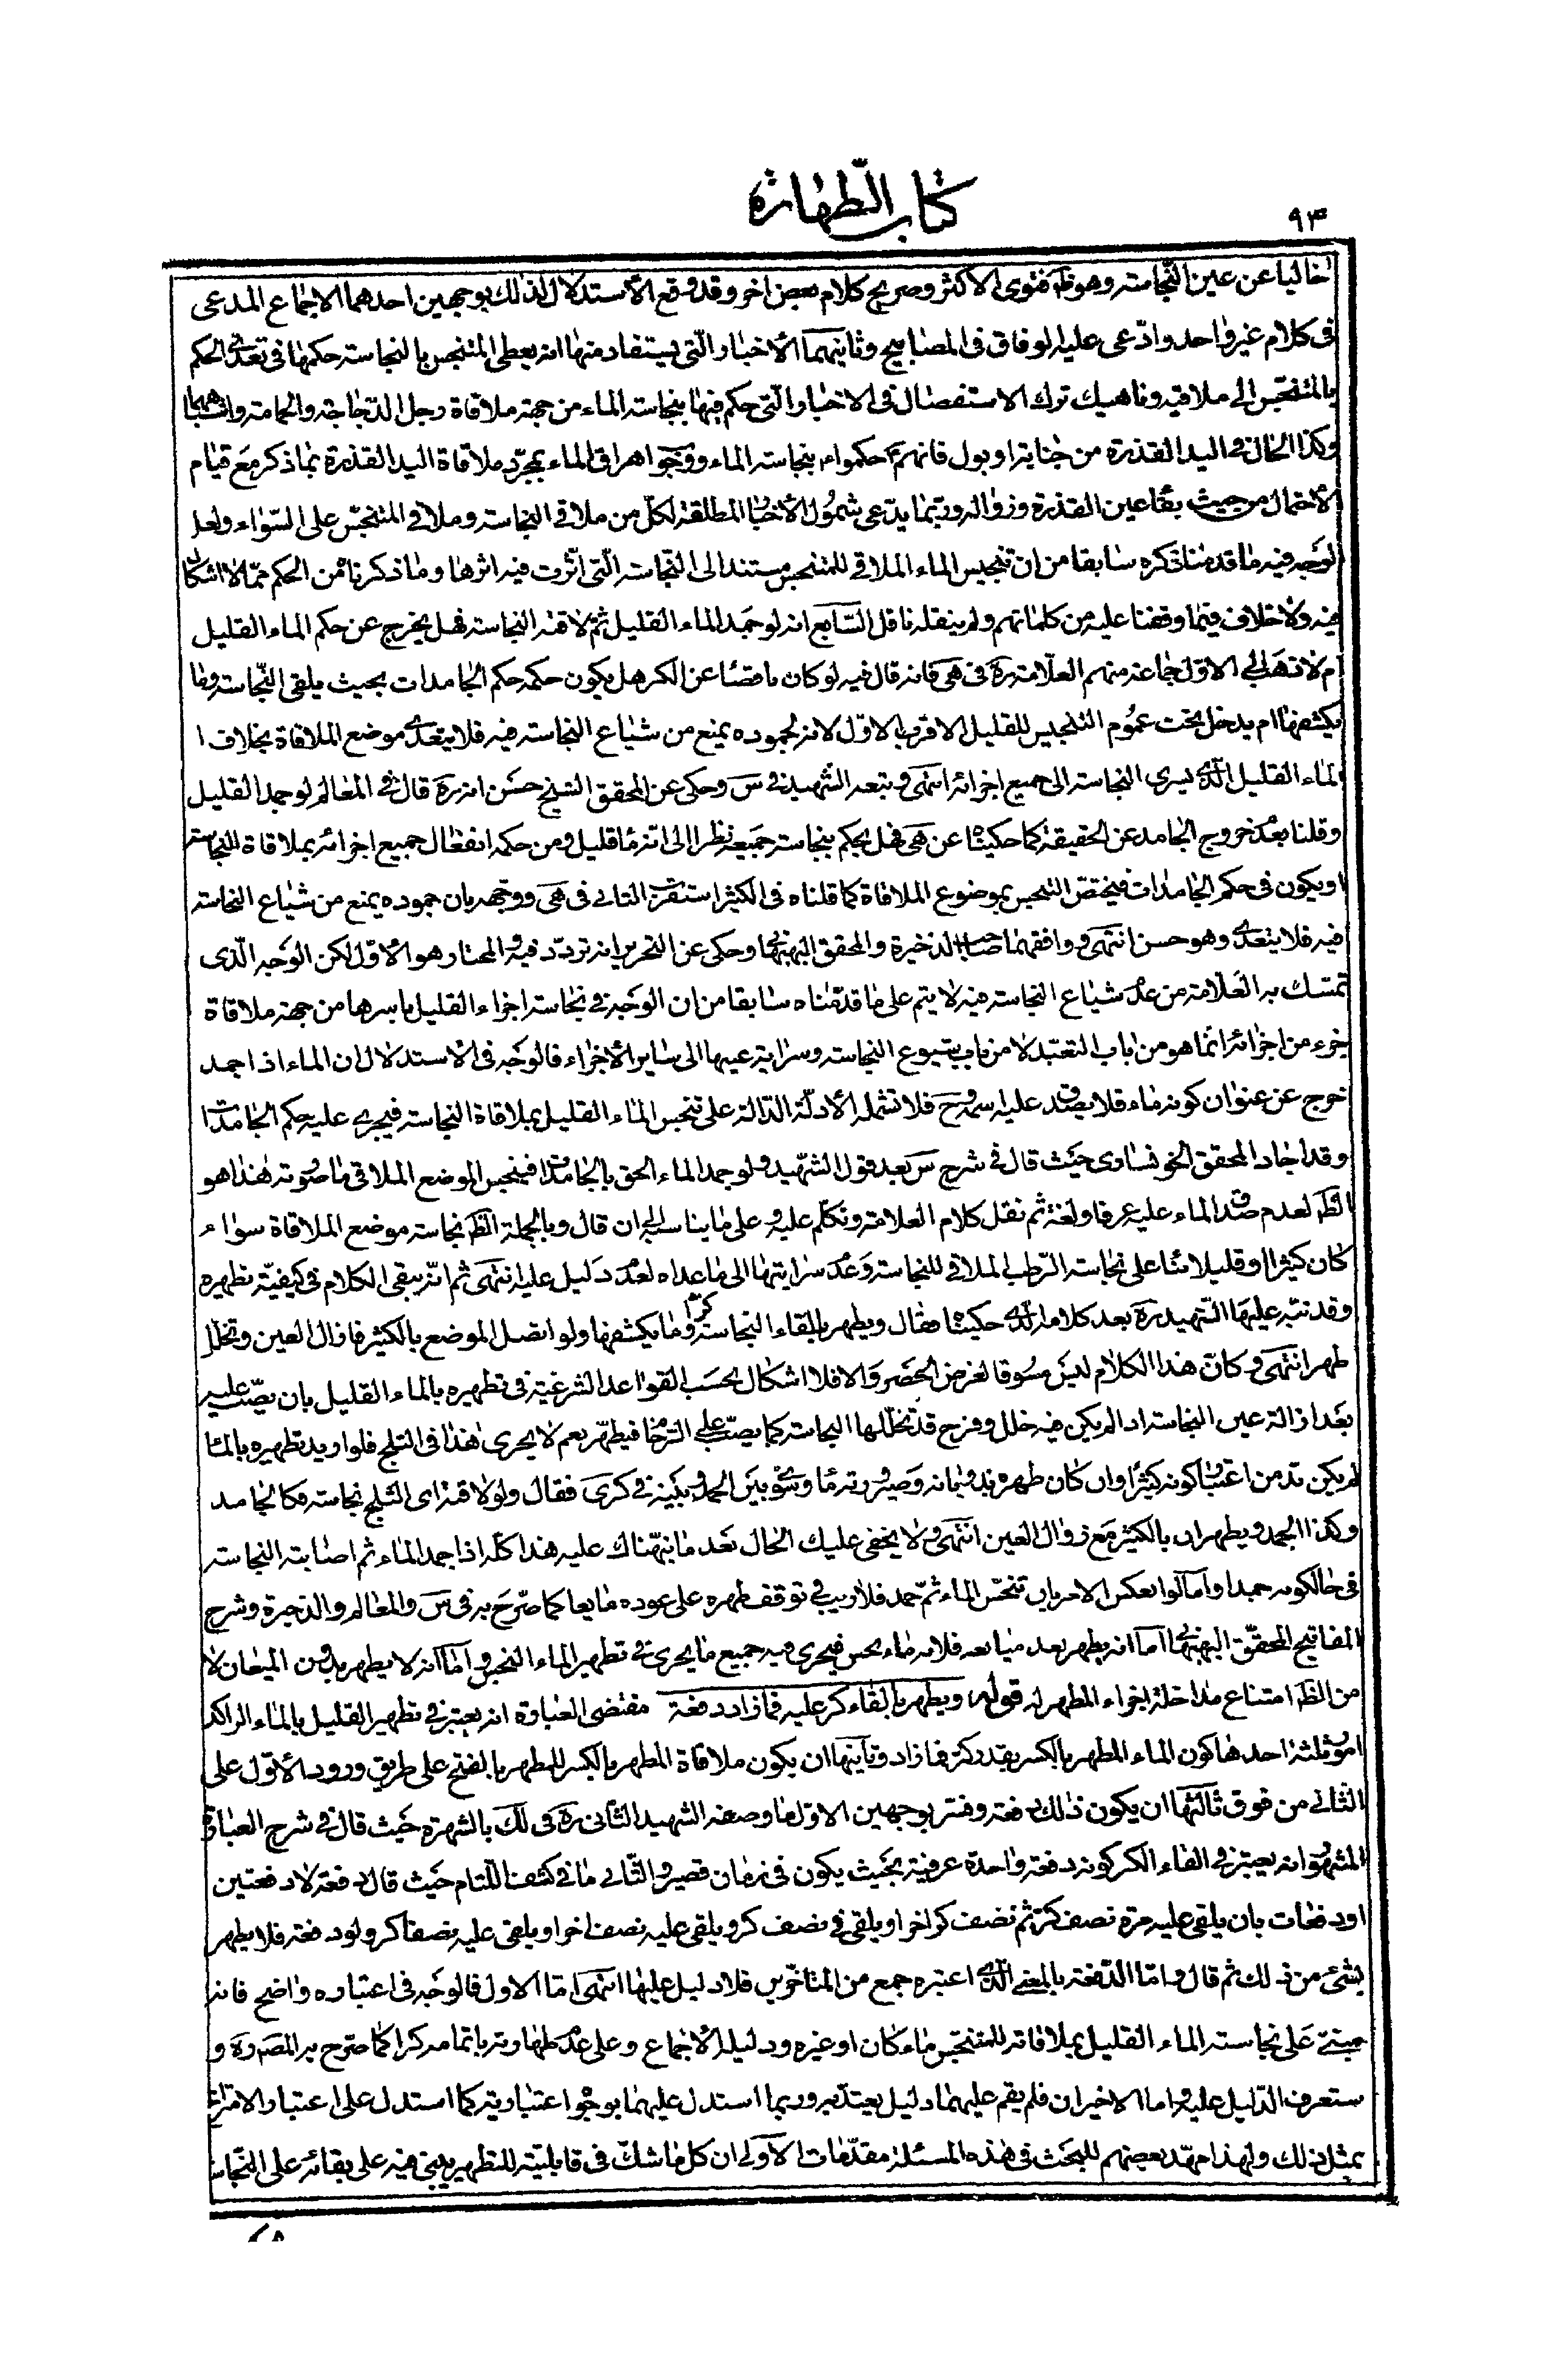 ٩٣
كتاب الطهارة
خاليا عن عين النجاسة وهو ظ فتوى الأكثر وصريح كلام بعض اخر وقد وقع الأستدلال لذلك بوجهين احدهما الاجماع المدعى
فى كلام غير واحد وادّعى عليه الوفاق فى المصابيح وثانيهما الأخبار الّتى يستفاد منها انه يعطى المتنجس بالنجاسة حكمها فى تعدى الحكم
بالمتنجّس الى ملاقيه وناهيك ترك الاستفصال فى الاخبار الّتى حكم فيها بنجاسة الماء من جهة ملاقاة رجل الدّجاجة والحمامة واشباههما
وكذا الحال فى اليد القذرة من جنابة او بول فانهم ع حكموا بنجاسة الماء ووجوب اهراق الماء بمجرّد ملاقاة اليد القذرة بما ذكر مع قيام
الأحتمال من حيث بقاء عين القذرة وزواله وربّما يدّعى شمول الأخبار المطلقة لكلّ من ملاقى النجاسة وملاقى المتنجّس على السّواء ولعل
الوجه فيه ما قدمنا ذكره سابقا من ان تنجيس الماء الملاقى للمتنجس مستند الى النّجاسة الّتى اثّرت فيه اثرها وما ذكرناه من الحكم ممّا لا اشكال
فيه ولا خلاف فيما وقفنا عليه من كلماتهم ولم ينقله ناقل السّابع انه لو جمد الماء القليل ثم لاقته النجاسة فهل يخرج عن حكم الماء القليل
ام لا ذهب الى الاوّل جماعة منهم العلّامة ره فى هى فانه قال فيه لو كان ناقصا عن الكر هل يكون حكمه حكم الجامدات بحيث يلقى النّجاسة وما
يكتنفها ام يدخل تحت عموم التنجيس للقليل الاقرب الاوّل لانه لجموده يمنع من شياع النجاسة فيه فلا يتعدى موضع الملاقاة بخلاف ا
لماء القليل الّذى يسرى النجاسة الى جميع اجزائه انتهى وتبعه الشّهيد فى س وحكى عن المحقق الشيخ حسن انه ره قال فى المعالم لو جمد القليل
وقلنا بعدم خروج الجامد عن الحقيقة كما حكيناه عن هى فهل يحكم بنجاسة جميعه نظرا الى انّه ماء قليل ومن حكمه انفعال جميع اجزائه بملاقاة النجاسة
او يكون فى حكم الجامدات فيختصّ التنجيس بموضع الملاقاة كما قلناه فى الكثير استقرب الثانى فى هى ووجهه بان جموده يمنع من شياع النجاسة
فيه فلا يتعدى وهو حسن انتهى ووافقهما صاحب الذخيرة والمحقق البهبهانى وحكى عن التحرير انه تردّد فيه والمختار هو الأوّل لكن الوجه الّذى
تمسّك به العلّامة من عدم شياع النجاسة فيه لا يتم على ما قدمناه سابقا من ان الوجه فى نجاسة اجزاء القليل باسرها من جهة ملاقاة
جزء من اجزائه انّما هو من باب التعبّد لا من باب شيوع النجاسة وسراية عينها الى ساير الأجزاء فالوجه فى الأستدلال ان الماء اذا جمد
خرج عن عنوان كونه ماء فلا يصدق عليه اسمه وح فلا تشمله الأدلّة الدّالة على تنجس الماء القليل بملاقاة النجاسة فيجرى عليه حكم الجامدات
وقد اجاد المحقق الخونسارى حيث قال فى شرح س بعد قول الشّهيد ولو جمد الماء الحق بالجامدات فينجس الموضع الملاقى ما صورته هذا هو
الظّ لعدم صدق الماء عليه عرفا ولغة ثم نقل كلام العلامة وتكلّم عليه وعلى ما يناسبه الى ان قال وبالجملة الظّ نجاسة موضع الملاقاة سواء
كان كثيرا او قليلا بناء على نجاسة الرّطب الملاقى للنجاسة وعدم سرايتها الى ما عداه لعدم دليل عليه انتهى ثم انّه يبقى الكلام فى كيفيّة تطهيره
وقد نبّه عليها الشّهيد ره بعد كلامه الّذى حكيناه فقال ويطهر بالقاء النجاسة وما يكتنفها ولو اتصل الموضع بالكثير فازال العين وتخلل
طهر انتهى وكانّ هذا الكلام ليس مسوقا لغرض الحصر والا فلا اشكال بحسب القواعد الشرعيّة فى تطهيره بالماء القليل بان يصبّ عليه
بعد ازالة عين النجاسة اذا لم يكن فيه خلل وفرج قد تخلّلها النجاسة كما يصبّ على الرّخام فيطهّر نعم لا يجرى هذا فى الثلج فلو اريد تطهيره بالماء
لم يكن بد من اعتبار كونه كثيرا وان كان طهره بذوبانه وصيرورته ماء وسوّى بين الجمد وبينه فى كرى فقال ولو لاقته اى الثلج نجاسة فكالجامد
وكذا الجمد ويطهران بالكثير مع زوال العين انتهى ولا يخفى عليك الحال بعد ما نبّهناك عليه هذا كلّه اذا جمد الماء ثم اصابته النجاسة
فى حال كونه جمدا وامّا لو انعكس الامر بان تنجّس الماء ثمّ جمد فلا ريب فى توقف طهره على عوده مايعا كما صرّح به فى س والمعالم والذخيرة وشرح
المفاتيح للمحقّق البهبهانى امّا انه يطهر بعد ميعانه فلانه ماء نجس فيجرى فيه جميع ما يجرى فى تطهير الماء النجس وامّا انه لا يطهر بدون الميعان فلا
من الظّ امتناع مداخلة اجزاء المطهر له قوله ويطهر بالقاء كر عليه فما زاد دفعة مقتضى العبارة انه يعتبر فى تطهير القليل بالماء الراكد
امور ثلثة احدها كون الماء المطهر بالكسر بقدر كرّ فما زاد وثانيها ان يكون ملاقاة المطهر بالكسر للمطهر بالفتح على طريق ورود الأوّل على
الثّانى من فوق ثالثها ان يكون ذلك دفعة وفسّر بوجهين الاوّل ما وصفه الشهيد الثّانى ره فى لك بالشهرة حيث قال فى شرح العبارة
المشهور انه يعتبر فى القاء الكر كونه دفعة واحدة عرفيّة بحيث يكون فى زمان قصير والثّانى ما فى كشف اللّثام حيث قال دفعة لا دفعتين
او دفعات بان يلقى عليه مرة نصف كرّ ثم نصف كر اخر او يلقى فى نصف كر ويلقى عليه نصف اخر او يلقى عليه نصفا كر ولو دفعة فلا يطهر
بشئ من ذلك ثم قال وامّا الدّفعة بالمعنى الّذى اعتبره جمع من المتأخّرين فلا دليل عليها انتهى امّا الاول فالوجه فى اعتباره واضح فانه
مبنىّ على نجاسة الماء القليل بملاقاته للمتنجّس ماء كان او غيره ودليله الأجماع وعلى عدم طهارته باتمامه كرا كما صرّح به المصّ ره و
ستعرف الدّليل عليه واما الاخيران فلم يقم عليهما دليل يعتدّ به وربما استدل عليهما بوجوه اعتبارية كما استدل على اعتبار الامتزاج
بمثل ذلك ولهذا مهّد بعضهم للبحث فى هذه المسئلة مقدّمات الاولى ان كل ما شكّ فى قابليّته للتطهير يبنى فيه على بقائه على النّجاسة